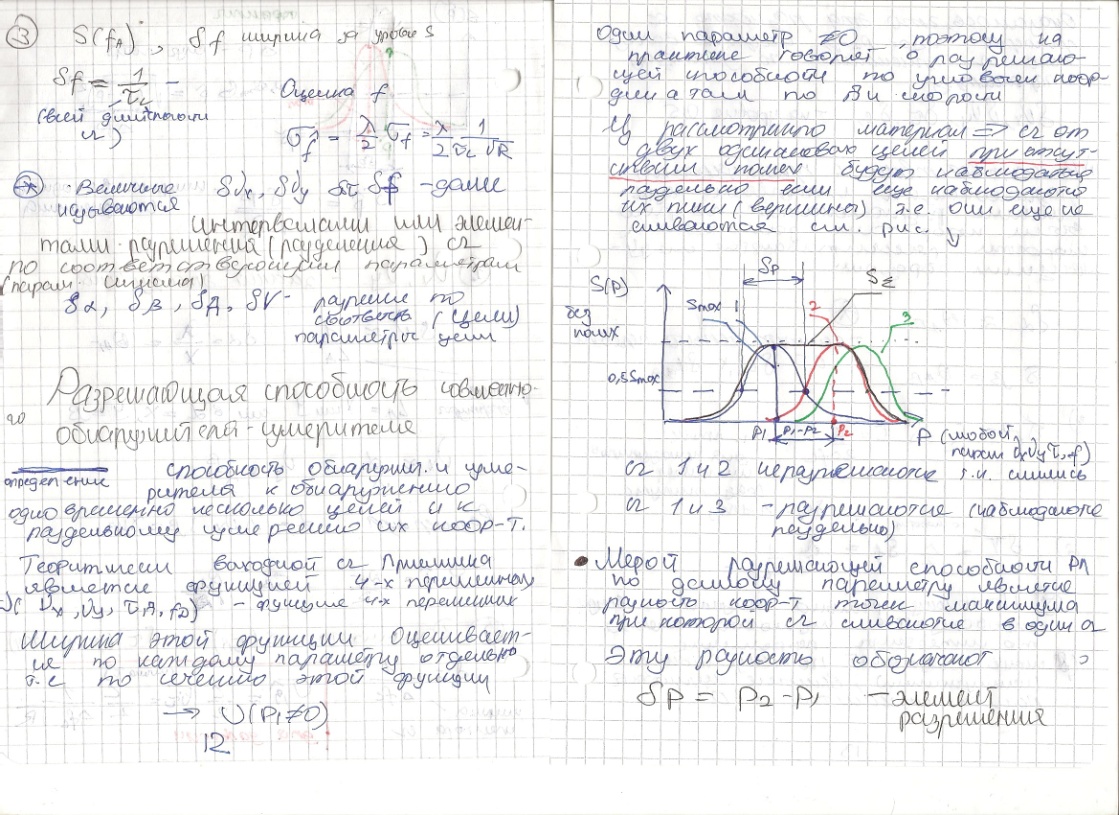 ③ S(fд), δf ширина за уровне S
δf = 1/τc
(всей длительности
сг)
Оценка f
σf̂ = λ/2 σf = λ/2 1/(τc √R)
Величине δνx, δνy δτ δf - далее
называются
интервалами или элемен-
тами разрешения (разделения) сг
по соответствующим параметрам
(парам. сигнала)
δα, δβ, δД, δV - разреше по
соответв (цели)
параметрос цели
Разрешающая способность совместно-
го обнаружителя-измерителя
определение способность обнаружит. и изме-
рителя к обнаружению
одновременно несколько целей и к
раздельному измерению их коор-т.
Теоритически выходной сг Приемника
является функцией 4-х переменных
(νx, νy, τд, fд) - функцие 4-х переменных
Ширина этой функции Оценивает-
ся по каждому параметру отдельно
т.е по сечению этой функции
→ U(P1≠0)
12
Один параметр ≠0, поэтому на
практике говорят о разрешаю-
щей способности по угловым коор-
динатам по Д и скорости
Из рассмотренно материал => сг от
двух одинаковых целей при отсут-
ствии помех будут наблюдатся
раздельно если еще наблюдаются
их пики (вершины) т.е. они еще не
сливаются см. рис. ↓
S(P)
без
помех
δp
Smax 1 2 SΣ 3
0,5 Smax
P1 P1-P2 P2 P (любой
парам νx νy τ, f)
сг 1 и 2 неразрешаются т.к. слились
сг 1 и 3 - разрешаются (наблюдаются
раздельно)
• Мерой разрешающей способности РЛ
по данному параметру является
разность коор-т точек максимума
при которой сг сливаются в один сг
Эту разность обозначают
δP = P2 - P1 - элемент
разрешения